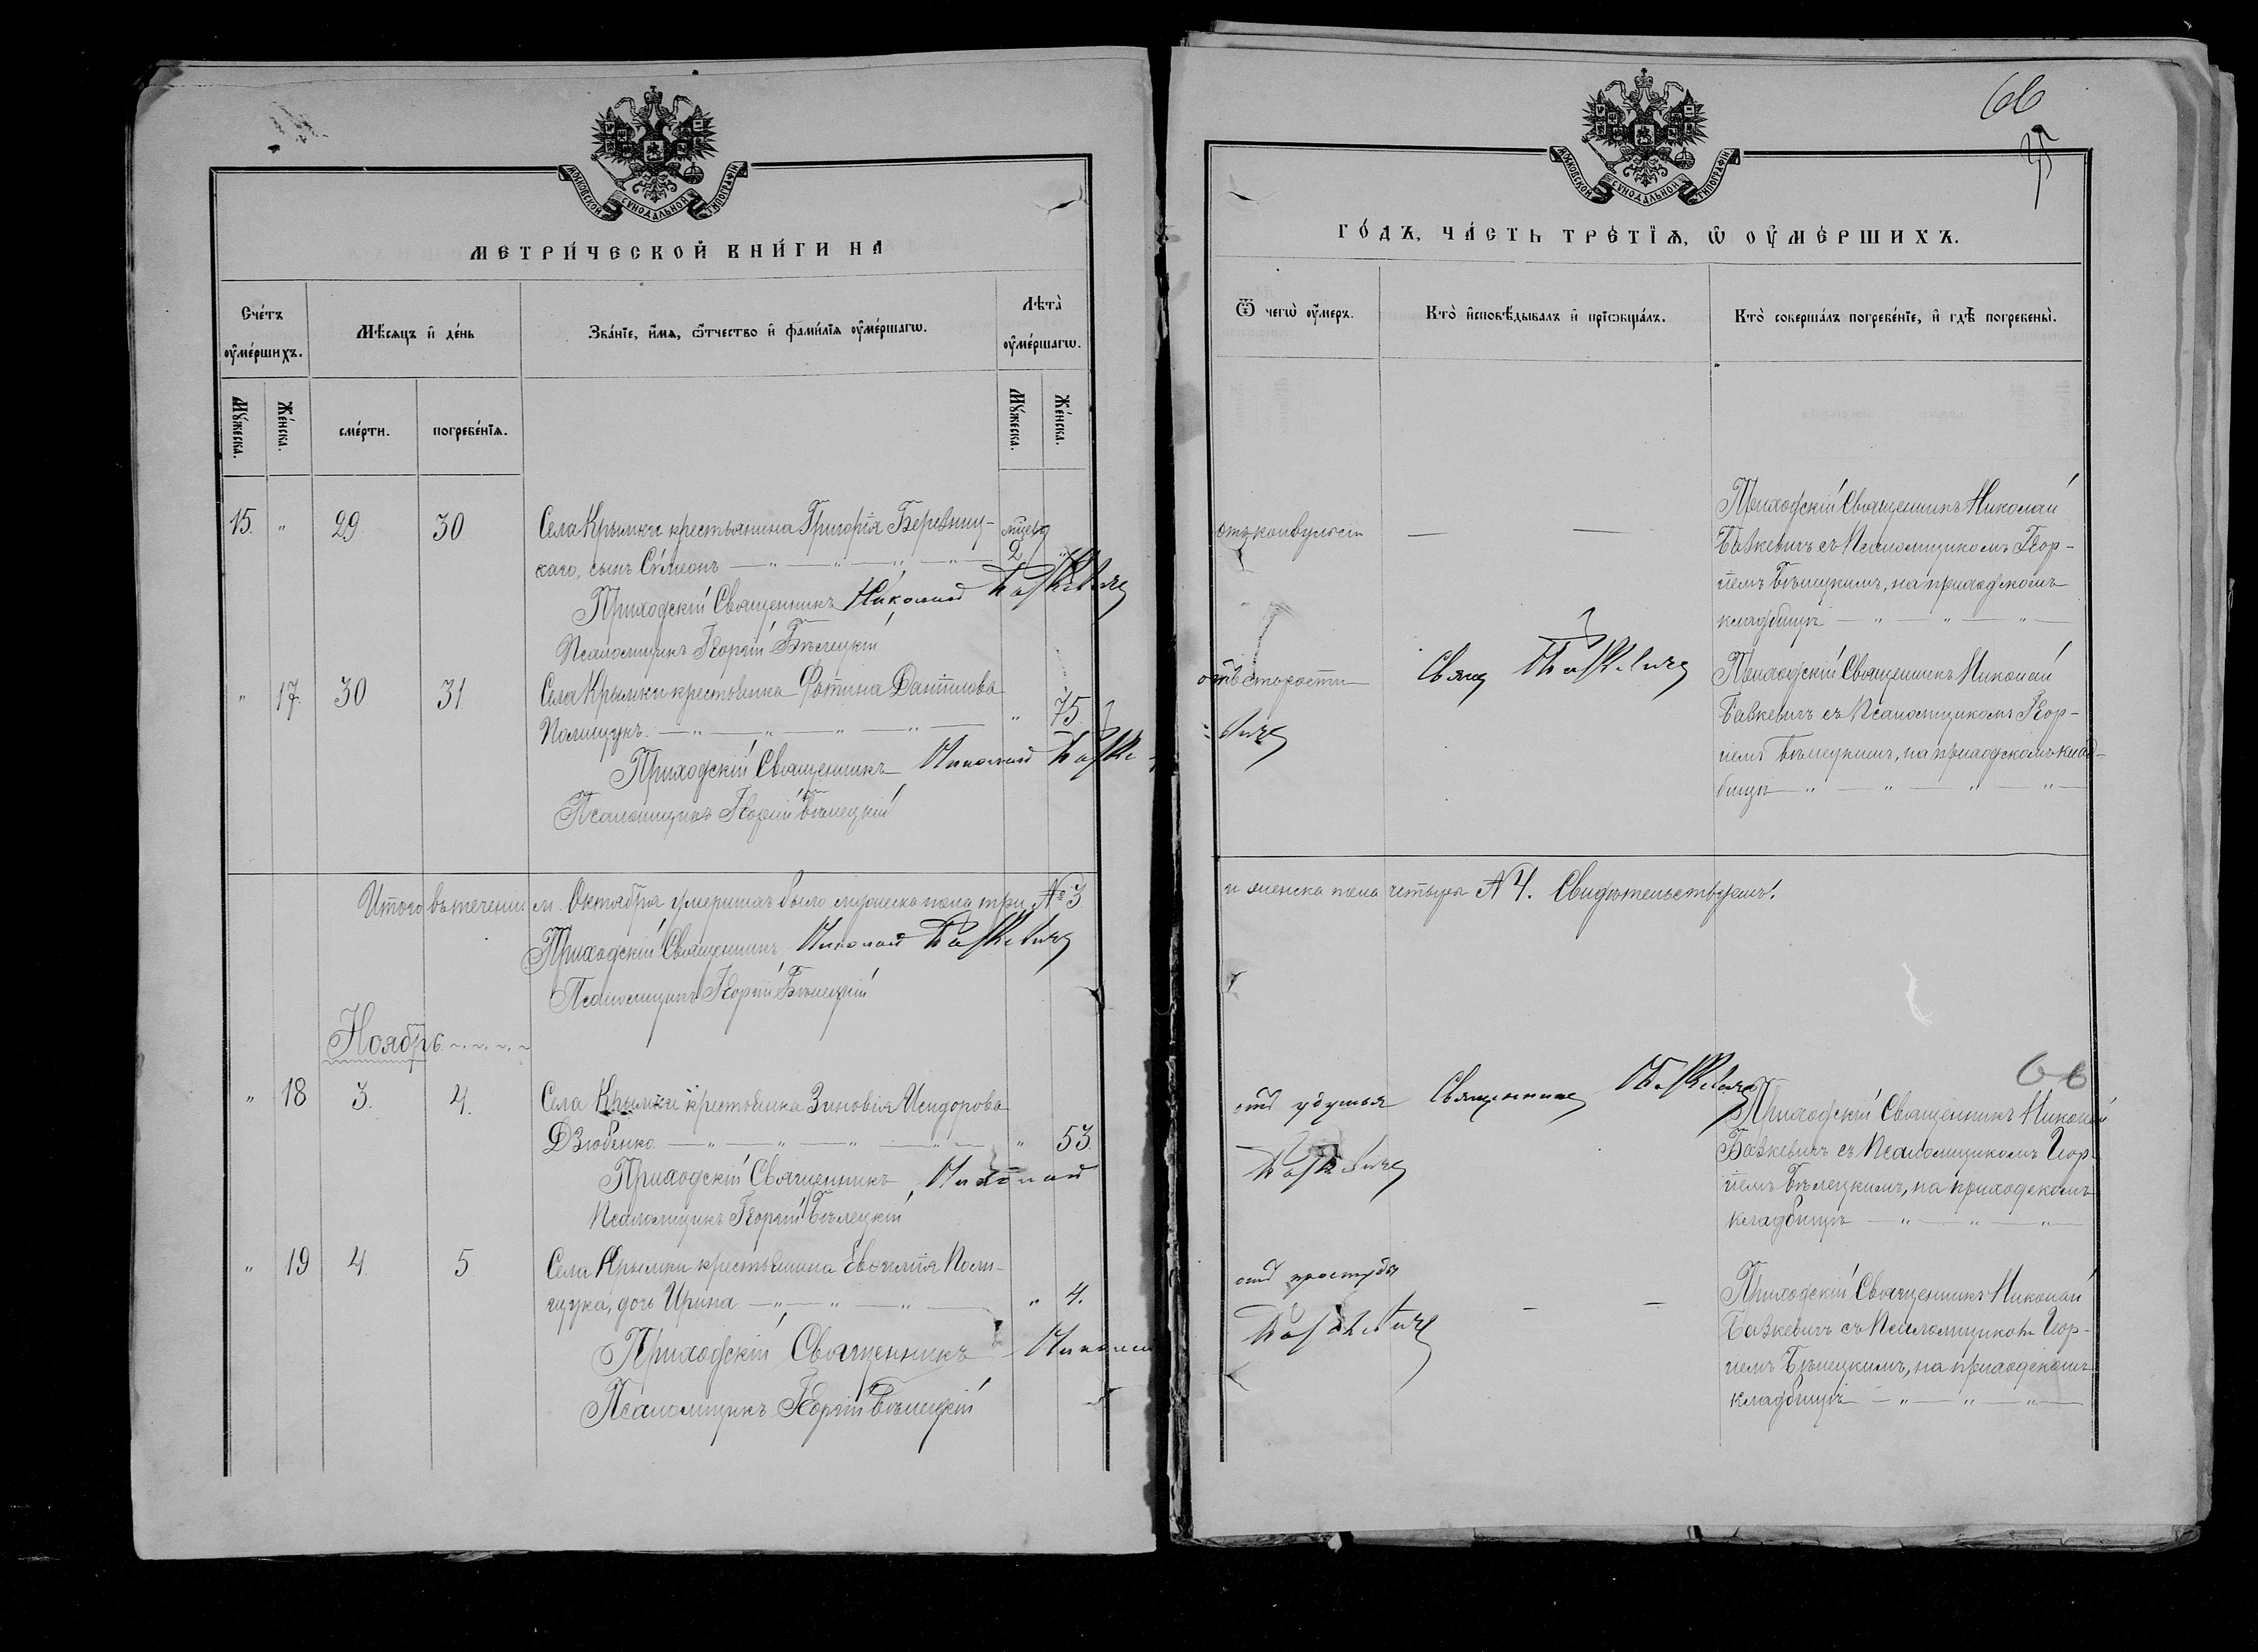 МОСКОВСКОЙ СѴНОДАЛЬНОЙ ТИПОГРАФІИ
МЕТРИ́ЧЕСКОЙ КНИ́ГИ НА
Сче́тъ оумéршихъ.
Мѣ́сяцъ и де́нь
Зва́нїе, и́мѧ, ѻ́тчество и фами́лїѧ оумéршагѡ.
Лѣта̀ оумéршагѡ.
Мꙋ́жеска.
Же́нска.
сме́рти.
погребе́нїѧ.
Мꙋ́жеска.
Же́нска.
15. " 29 30 Села Крымки крестьянина Григорія Березниц-
каго, сынъ Сѵмеонъ — " — " — " — " — 2 "
Приходскій Священникъ Николай Базкевичъ
Псаломщикъ Георгій Бѣлецкій
" 17. 30 31 Села Крымки крестьянка Фотина Даніилова
Полищукъ. — " — " — " — " — " 75.
Приходскій Священникъ Николай Базке-
Псаломщикъ Георгій Бѣлецкій
Итого въ теченіи м. Октября умершихъ было мужеска пола три № 3
Приходскій Священникъ Николай Базкевичъ
Псаломщикъ Георгій Бѣлецкій
Ноябрь.
" 18 3. 4. Села Крымки крестьянка Зиновія Исидорова
Дзюбенко. — " — " — " — " — " 53
Приходскій Священникъ Николай
Псаломщикъ Георгій Бѣлецкій
" 19 4. 5 Села Крымки крестьянина Поли-
щука, дочь Ирина — " — " — " — " 4.
Приходскій Священникъ Николай
Псаломщикъ Георгій Бѣлецкій
66
35
МОСКОВСКОЙ СѴНОДАЛЬНОЙ ТИПОГРАФІИ
ГО́ДЪ, ЧА́СТЬ ТРЕ́ТЇѦ, Ѡ ОУМЕ́РШИХЪ.
Ѿ чегѡ̀ оу́меръ.
Кто̀ исповѣ́дывалъ и прїѡбща́лъ.
Кто̀ соверша́лъ погребе́нїе, и гдѣ̀ погребены̀.
отъ конвульсіи — —
Приходскій Священникъ Николай
Базкевичъ съ Псаломщикомъ Геор-
гіемъ Бѣлецкимъ, на приходскомъ
кладбищѣ — " — " — " —
отъ старости Свящ Базкевичъ
вичъ
Приходскій Священникъ Николай
Базкевичъ съ Псаломщикомъ Геор-
гіемъ Бѣлецкимъ, на приходскомъ клад-
бищѣ — " — " — " — " —
и женска пола четыре № 4. Свидѣтельствуемъ:
66
отъ удушья Священникъ Базкевичъ
Базкевичъ
Приходскій Священникъ Николай
Базкевичъ съ Псаломщикомъ Геор-
гіемъ Бѣлецкимъ, на приходскомъ
кладбищѣ — " — " — " —
отъ простуды — —
Базкевичъ
Приходскій Священникъ Николай
Базкевичъ съ Псаломщикомъ Геор-
гіемъ Бѣлецкимъ, на приходскомъ
кладбищѣ — " — " — " —